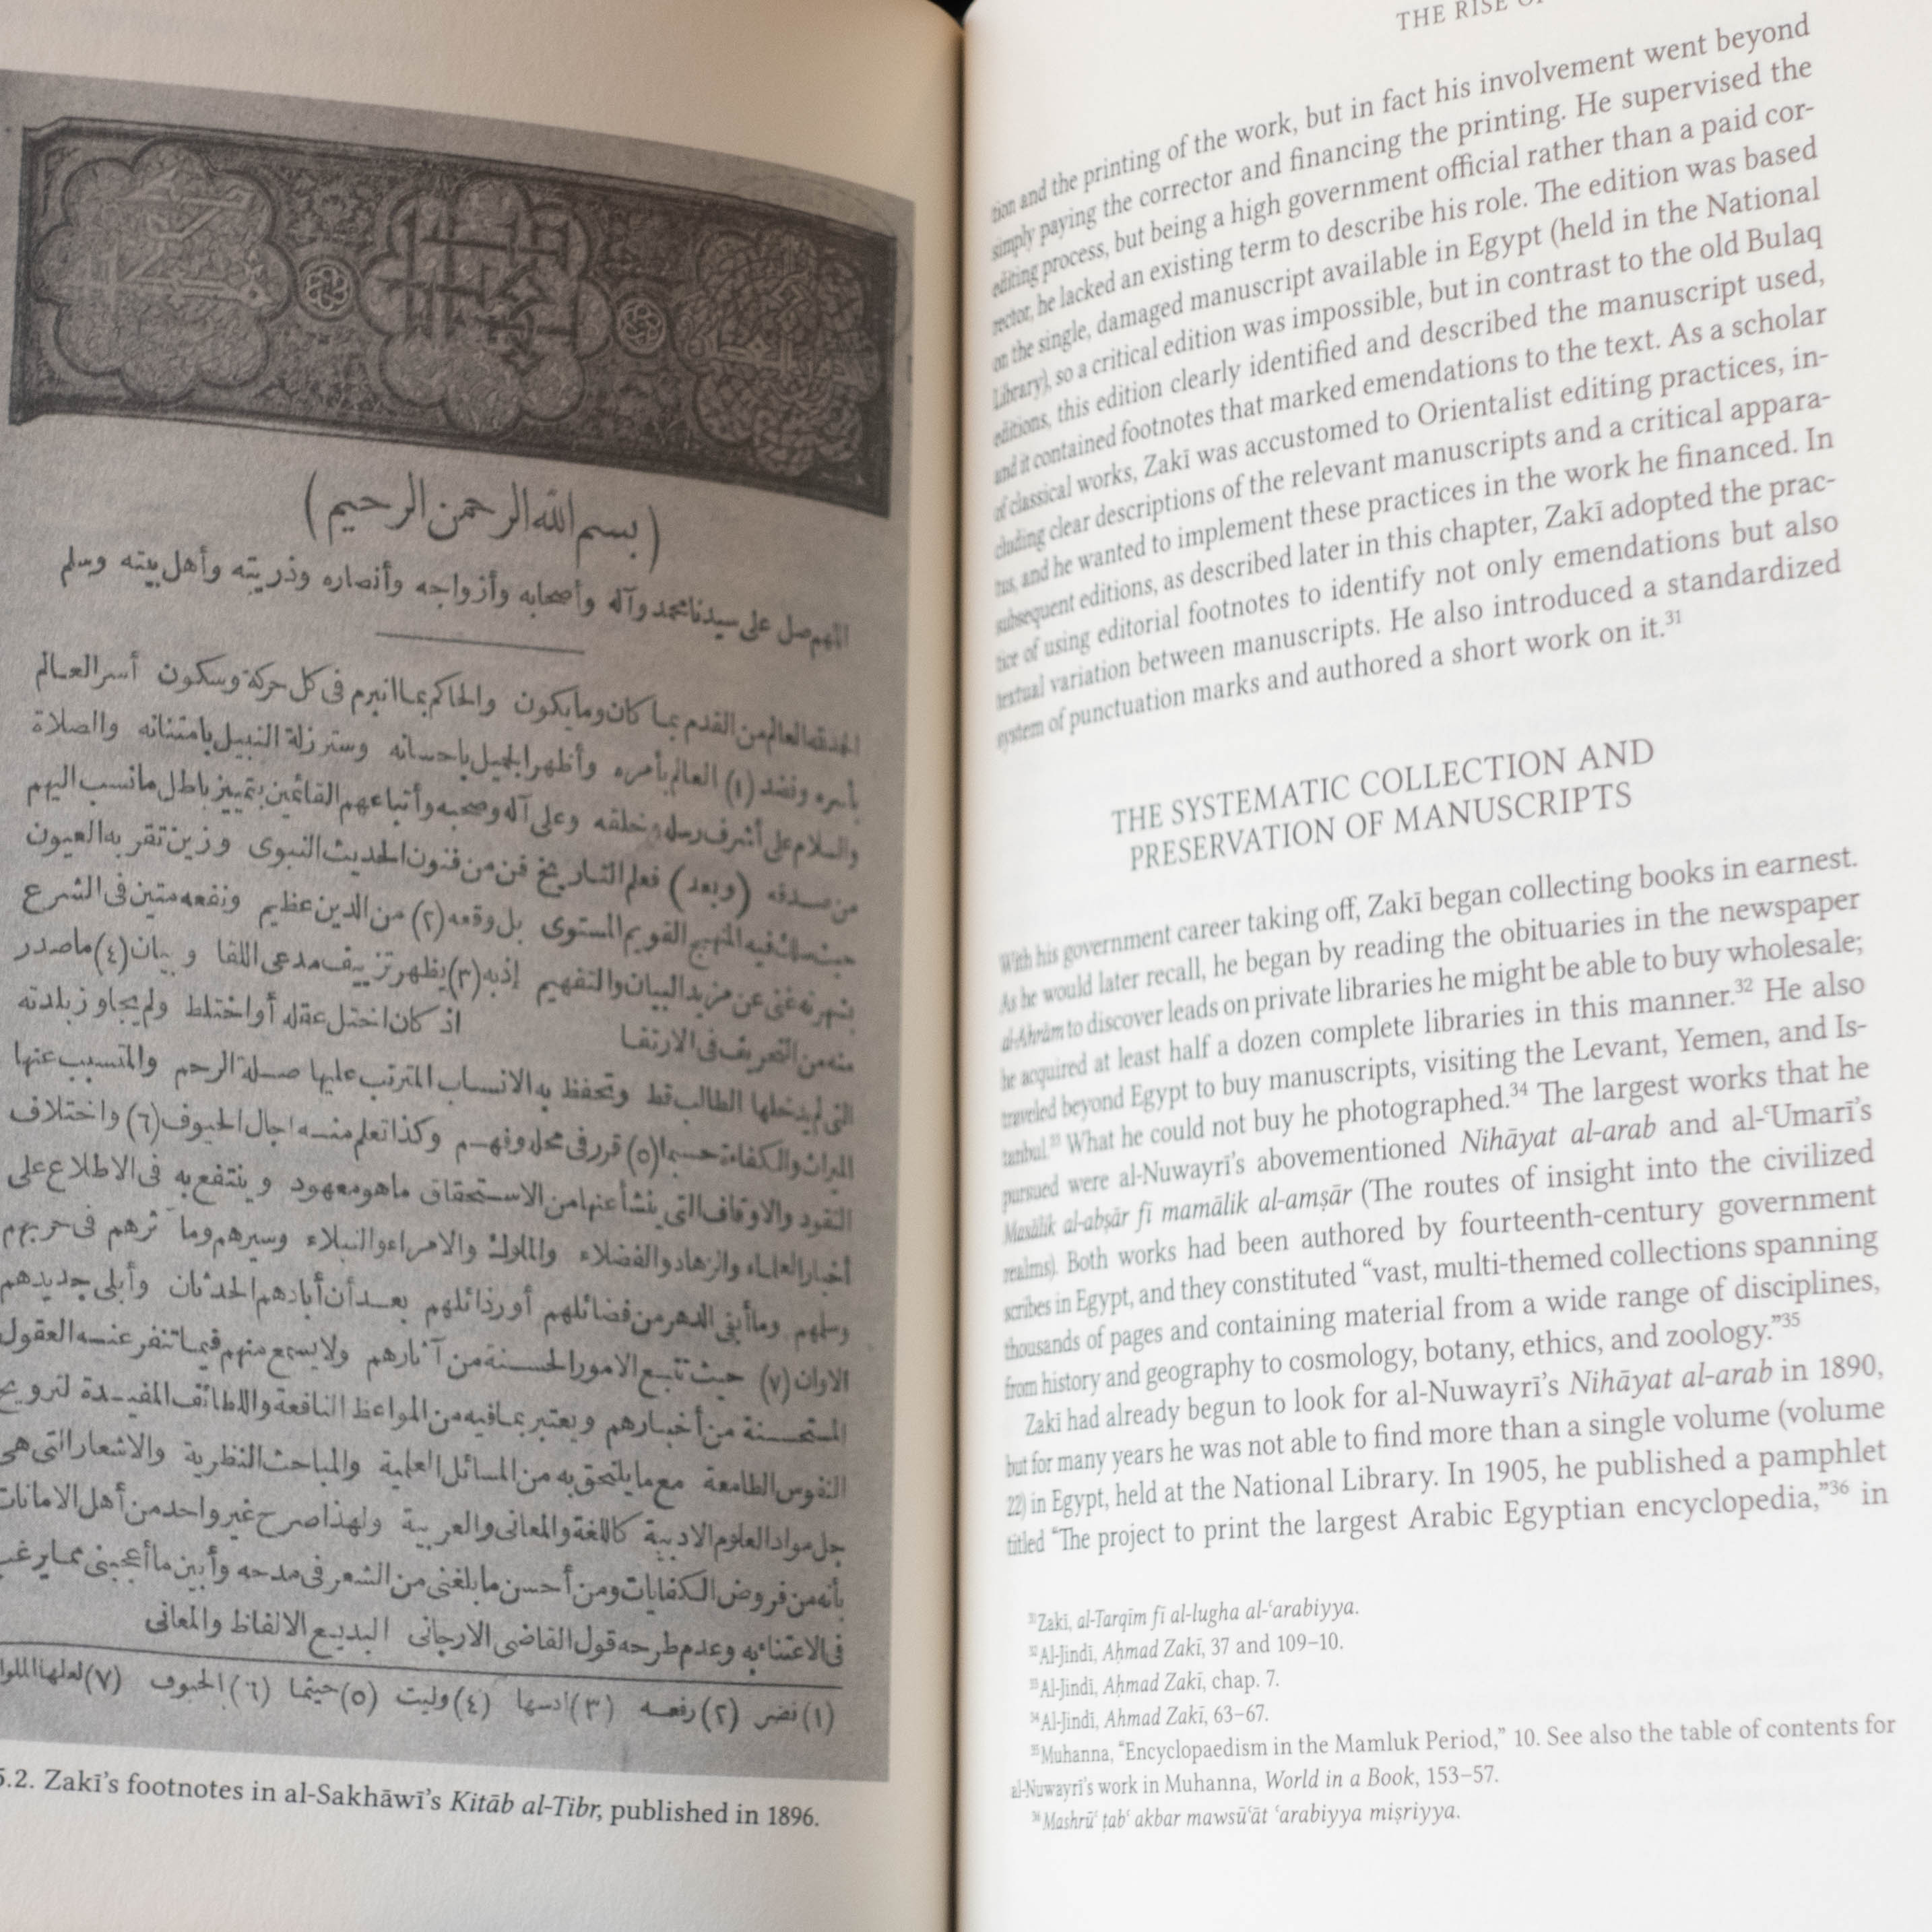 (بسم الله الرحمن الرحيم)
اللهم صل على سيدنا محمد وآله وأصحابه وأزواجه وأنصاره وذريته وأهل بيته وسلم
الحمد لله العالم من القدم بما كان وما يكون والحاكم بما انبرم فى كل حركة وسكون أسر العالم
بأسره ونضد (١) العالم بأمره وأظهر الجميل باحسانه وستر زلة النبيل بامتنانه والصلاة
والسلام على أشرف رسله وخلقه وعلى آله وصحبه وأتباعهم القائمين بتمييز باطل ما نسب اليهم
من صدقه (وبعد) فعلم التاريخ فن من فنون الحديث النبوى وزين تقر به العيون
حيث سلك فيه المنهج القويم المستوى بل وقعه (٢) من الدين عظيم ونفعه متين فى الشرع
بشهرته غنى عن مزيد البيان والتفهيم إذ به (٣) يظهر تزييف مدعى اللقا وبيان (٤) ما صدر
منه من التحريف فى الارتقا اذ كان اختل عقله أو اختلط ولم يجاوز بلدته
التى لم يدخلها الطالب قط وتحفظ به الانساب المترتب عليها صلة الرحم والمتسبب عنها
الميراث والكفاءة حسبما (٥) قرر فى محله وفهم وكذا تعلم منه اجال الحيوف (٦) واختلاف
النقود والاوقاف التى ينشأ عنها من الاستحقاق ما هو معهود وينتفع به فى الاطلاع على
أخبار العلماء والزهاد والفضلاء والملوك والامراء والنبلاء وسيرهم ومآثرهم فى حربهم
وسلمهم وما أبقى الدهر من فضائلهم أو رذائلهم بعد أن أبادهم الحدثان وأبلى جديدهم
الاوان (٧) حيث تتبع الامور الحسنة من آثارهم ولا يسمع منهم فيما تنفر عنه العقول
المستحسنة من أخبارهم ويعتبر بما فيه من المواعظ النافعة واللطائف المفيدة لترويح
النفوس الطامعة مع ما يلتحق به من المسائل العلمية والمباحث النظرية والاشعار التى هى
جل مواد العلوم الادبية كاللغة والمعانى والعربية ولهذا صرح غير واحد من أهل الامانات
بأنه من فروض الكفايات ومن أحسن ما بلغنى من الشعر فى مدحه وأبين ما أعجبنى مما يرغب
فى الاعتناء به وعدم طرحه قول القاضى الارجانى البديع الالفاظ والمعانى
(١) نضر (٢) رفعه (٣) ادسها (٤) وليت (٥) حيثما (٦) الحبوف (٧) لعلها الملوا
5.2. Zakī’s footnotes in al-Sakhāwī’s Kitāb al-Tibr, published in 1896.
THE RISE
tion and the printing of the work, but in fact his involvement went beyond
simply paying the corrector and financing the printing. He supervised the
editing process, but being a high government official rather than a paid cor-
rector, he lacked an existing term to describe his role. The edition was based
on the single, damaged manuscript available in Egypt (held in the National
Library), so a critical edition was impossible, but in contrast to the old Bulaq
editions, this edition clearly identified and described the manuscript used,
and it contained footnotes that marked emendations to the text. As a scholar
of classical works, Zakī was accustomed to Orientalist editing practices, in-
cluding clear descriptions of the relevant manuscripts and a critical appara-
tus, and he wanted to implement these practices in the work he financed. In
subsequent editions, as described later in this chapter, Zakī adopted the prac-
tice of using editorial footnotes to identify not only emendations but also
textual variation between manuscripts. He also introduced a standardized
system of punctuation marks and authored a short work on it.31
THE SYSTEMATIC COLLECTION AND
PRESERVATION OF MANUSCRIPTS
With his government career taking off, Zakī began collecting books in earnest.
As he would later recall, he began by reading the obituaries in the newspaper
al-Ahrām to discover leads on private libraries he might be able to buy wholesale;
he acquired at least half a dozen complete libraries in this manner.32 He also
traveled beyond Egypt to buy manuscripts, visiting the Levant, Yemen, and Is-
tanbul.33 What he could not buy he photographed.34 The largest works that he
pursued were al-Nuwayrī’s abovementioned Nihāyat al-arab and al-ʿUmarī’s
Masālik al-abṣār fī mamālik al-amṣār (The routes of insight into the civilized
realms). Both works had been authored by fourteenth-century government
scribes in Egypt, and they constituted “vast, multi-themed collections spanning
thousands of pages and containing material from a wide range of disciplines,
from history and geography to cosmology, botany, ethics, and zoology.”35
Zakī had already begun to look for al-Nuwayrī’s Nihāyat al-arab in 1890,
but for many years he was not able to find more than a single volume (volume
22) in Egypt, held at the National Library. In 1905, he published a pamphlet
titled “The project to print the largest Arabic Egyptian encyclopedia,”36 in
31 Zakī, al-Tarqīm fī al-lugha al-ʿarabiyya.
32 Al-Jindī, Aḥmad Zakī, 37 and 109–10.
33 Al-Jindī, Aḥmad Zakī, chap. 7.
34 Al-Jindī, Ahmad Zakī, 63–67.
35 Muhanna, “Encyclopaedism in the Mamluk Period,” 10. See also the table of contents for
al-Nuwayrī’s work in Muhanna, World in a Book, 153–57.
36 Mashrūʿ ṭabʿ akbar mawsūʿāt ʿarabiyya miṣriyya.